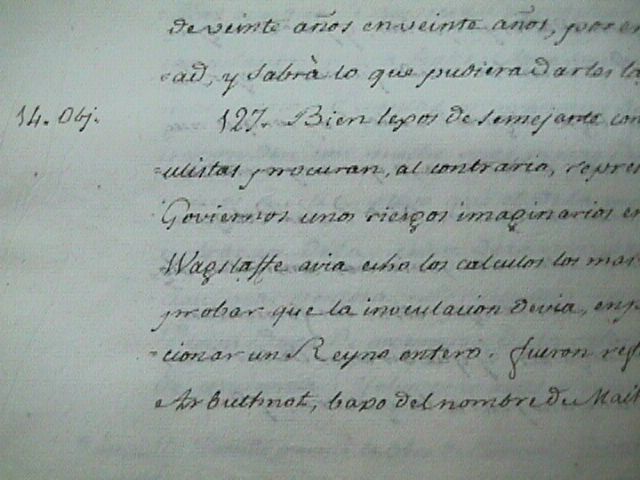 de veinte años en veinte años, por en
sad, y sabrà lo que pudiera darles la
14. Obj.
127. Bien lexos de semejante con
ulistas procuran, al contrario, repres
Goviernos unos riesgos imaginarios en
Wagstaffe avia echo los calculos los mas
probar que la inoculacion devia, en p
cionar un Reyno entero. fueron ref
Arbuthnot, baxo del nombre de Mait